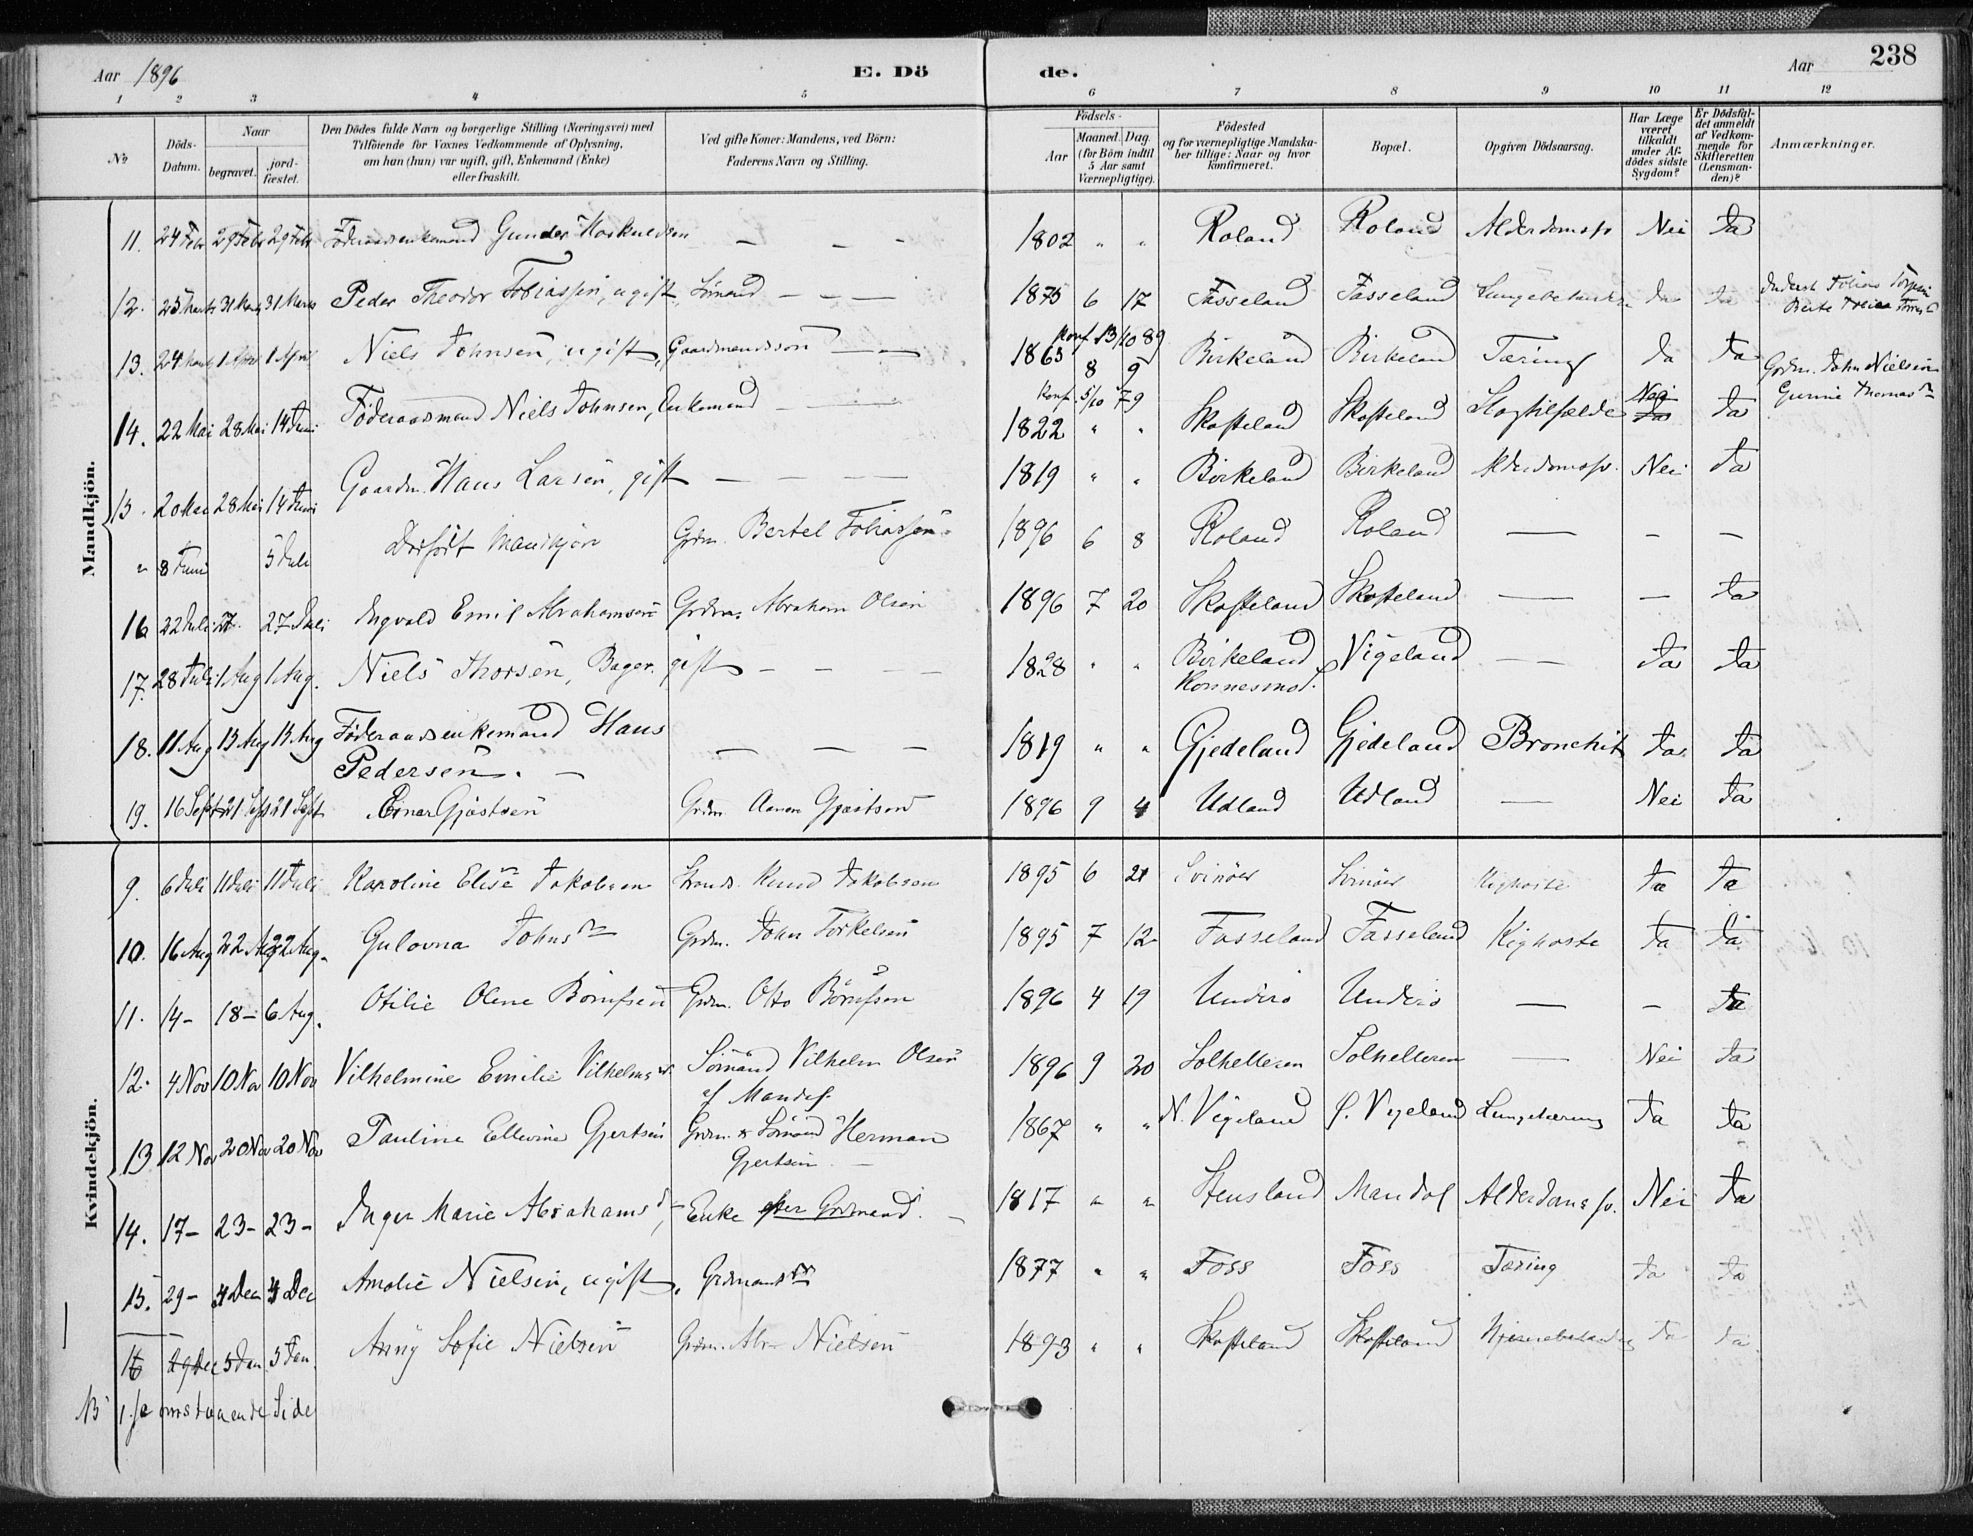 238
Aar 1896
E. Dö de.
Aar
1 2 3 4 5 6 7 8 9 10 11 12
No
Döds-Datum.
Naar
begravet.
jord-fæstet.
Den Dödes fulde Navn og borgerlige Stilling (Næringsvei) med
Tilföiende for Voxnes Vedkommende af Oplysning,
om han (hun) var ugift, gift, Enkemand (Enke)
eller fraskilt.
Ved gifte Koner: Mandens, ved Börn:
Faderens Navn og Stilling.
Födsels-
Aar
Maaned. Dag.
(for Börn indtil
5 Aar samt
Værnepligtige).
Födested
og for værnepligtige Mandska-
ber tillige: Naar og hvor
konfirmeret.
Bopæl.
Opgiven Dödsaarsag.
Har Læge
været
tilkaldt
under Af-
dödes sidste
Sygdom?
Er Dödsfal-
det anmeldt
af Vedkom-
mende for
Skifteretten
(Lensman-
den)?
Anmærkninger.
Mandkjön.
11. 24 Febr 29 Febr 29 Febr Föderaadsenkemand Gunder Hoskuldsen — — — 1802 " " Roland Roland Alderdomssv Nei Ja
12. 25 Marts 31 Marts 31 Marts Peder Theodor Tobiassen, ugift, Sömand — — — 1875 6 17 Fasseland Fasseland Ja Ja
Konf 13/10 89
13. 24 Marts 1 April 1 April Niels Johnsen, ugift, Gaardmandssön — — 1863 8 9 Birkeland Birkeland Tæring Ja Ja Grdm. John Nielsen
Konf. 5/10 79 Gurine Thomasdr
14. 22 Mai 28 Mai 14 Juni Föderaadsmand Niels Johnsen, Enkemand — — 1822 " " Skofteland Skofteland Slagtilfælde Nei Ja Ja
15. 20 Mai 28 Mai 14 Juni Gaardm. Hans Larsen, gift — — — — 1819 " " Birkeland Birkeland Alderdomssv. Nei Ja
" 8 Juni 5 Juli Dödfödt Mandkjön Grdm. Bertel Tobiassen. 1896 6 8 Roland Roland — — —
16 22 Juli 27. 27 Juli Ingvald Emil Abrahamsen Grdm. Abraham Olsen 1896 7 20 Skofteland Skofteland — — Ja
17. 28 Juli 1 Aug 1 Aug. Niels Thorsen, Bager. gift — — — 1828 " " Birkeland Konnesmo S. Vigeland — Ja Ja
18. 11 Aug 13 Aug 13 Aug Föderaadsenkemand Hans
Pedersen. — — — — 1819 " " Gjedeland Gjedeland Bronchit Ja Ja
19. 16 Sept 21 Sept 21 Sept Einar Gjostsen Grdm. Aanen Gjostsen 1896 9 4 Udland Udland — Nei Ja
Kvindekjön.
9. 6 Juli 11 Juli 11 Juli Karoline Elise Jakobsen Strands. Knud Jakobsen 1895 6 21 Svinöer Svinöer Kighoste Ja Ja
10. 16 Aug 22 Aug 22 Aug. Gulovna Johnsdr Grdm. John Torkelsen 1895 7 12 Fasseland Fasseland Kighoste Ja Ja
11. 14 - 18 - 6 Aug. Otilie Olene Börufsen Grdm. Otto Börufsen 1896 4 19 Underö Underö — — Ja
12. 4 Nov 10 Nov 10 Nov Vilhelmine Emilie Vilhelmsd. Sömand Vilhelm Olsen
af Mandal. 1896 9 20 Solhelleren Solhelleren — Nei Ja
13 12 Nov 20 Nov 20 Nov Pauline Ellevine Gjertsen Grdm. & Sömand Herman
Gjertsen. — 1867 " " N. Vigeland Ö. Vigeland Lungetæring Ja Ja
14. 17 - 23 - 23 - Inger Marie Abrahamsd., Enke efter Grdmand. — 1817 " " Stensland Mandal Alderdomssv. Nei Ja
15. 29 - 4 Dec 4 Dec Amalie Nielsen, ugift. Grdmandsdr 1877 " " Foss Foss Tæring Ja Ja
16 29 Dec 5 Jan 5 Jan. Anny Sofie Nielsen Grdm. Abr. Nielsen 1893 " " Skofteland Skofteland Ja Ja
NB 1. se omstaaende Side